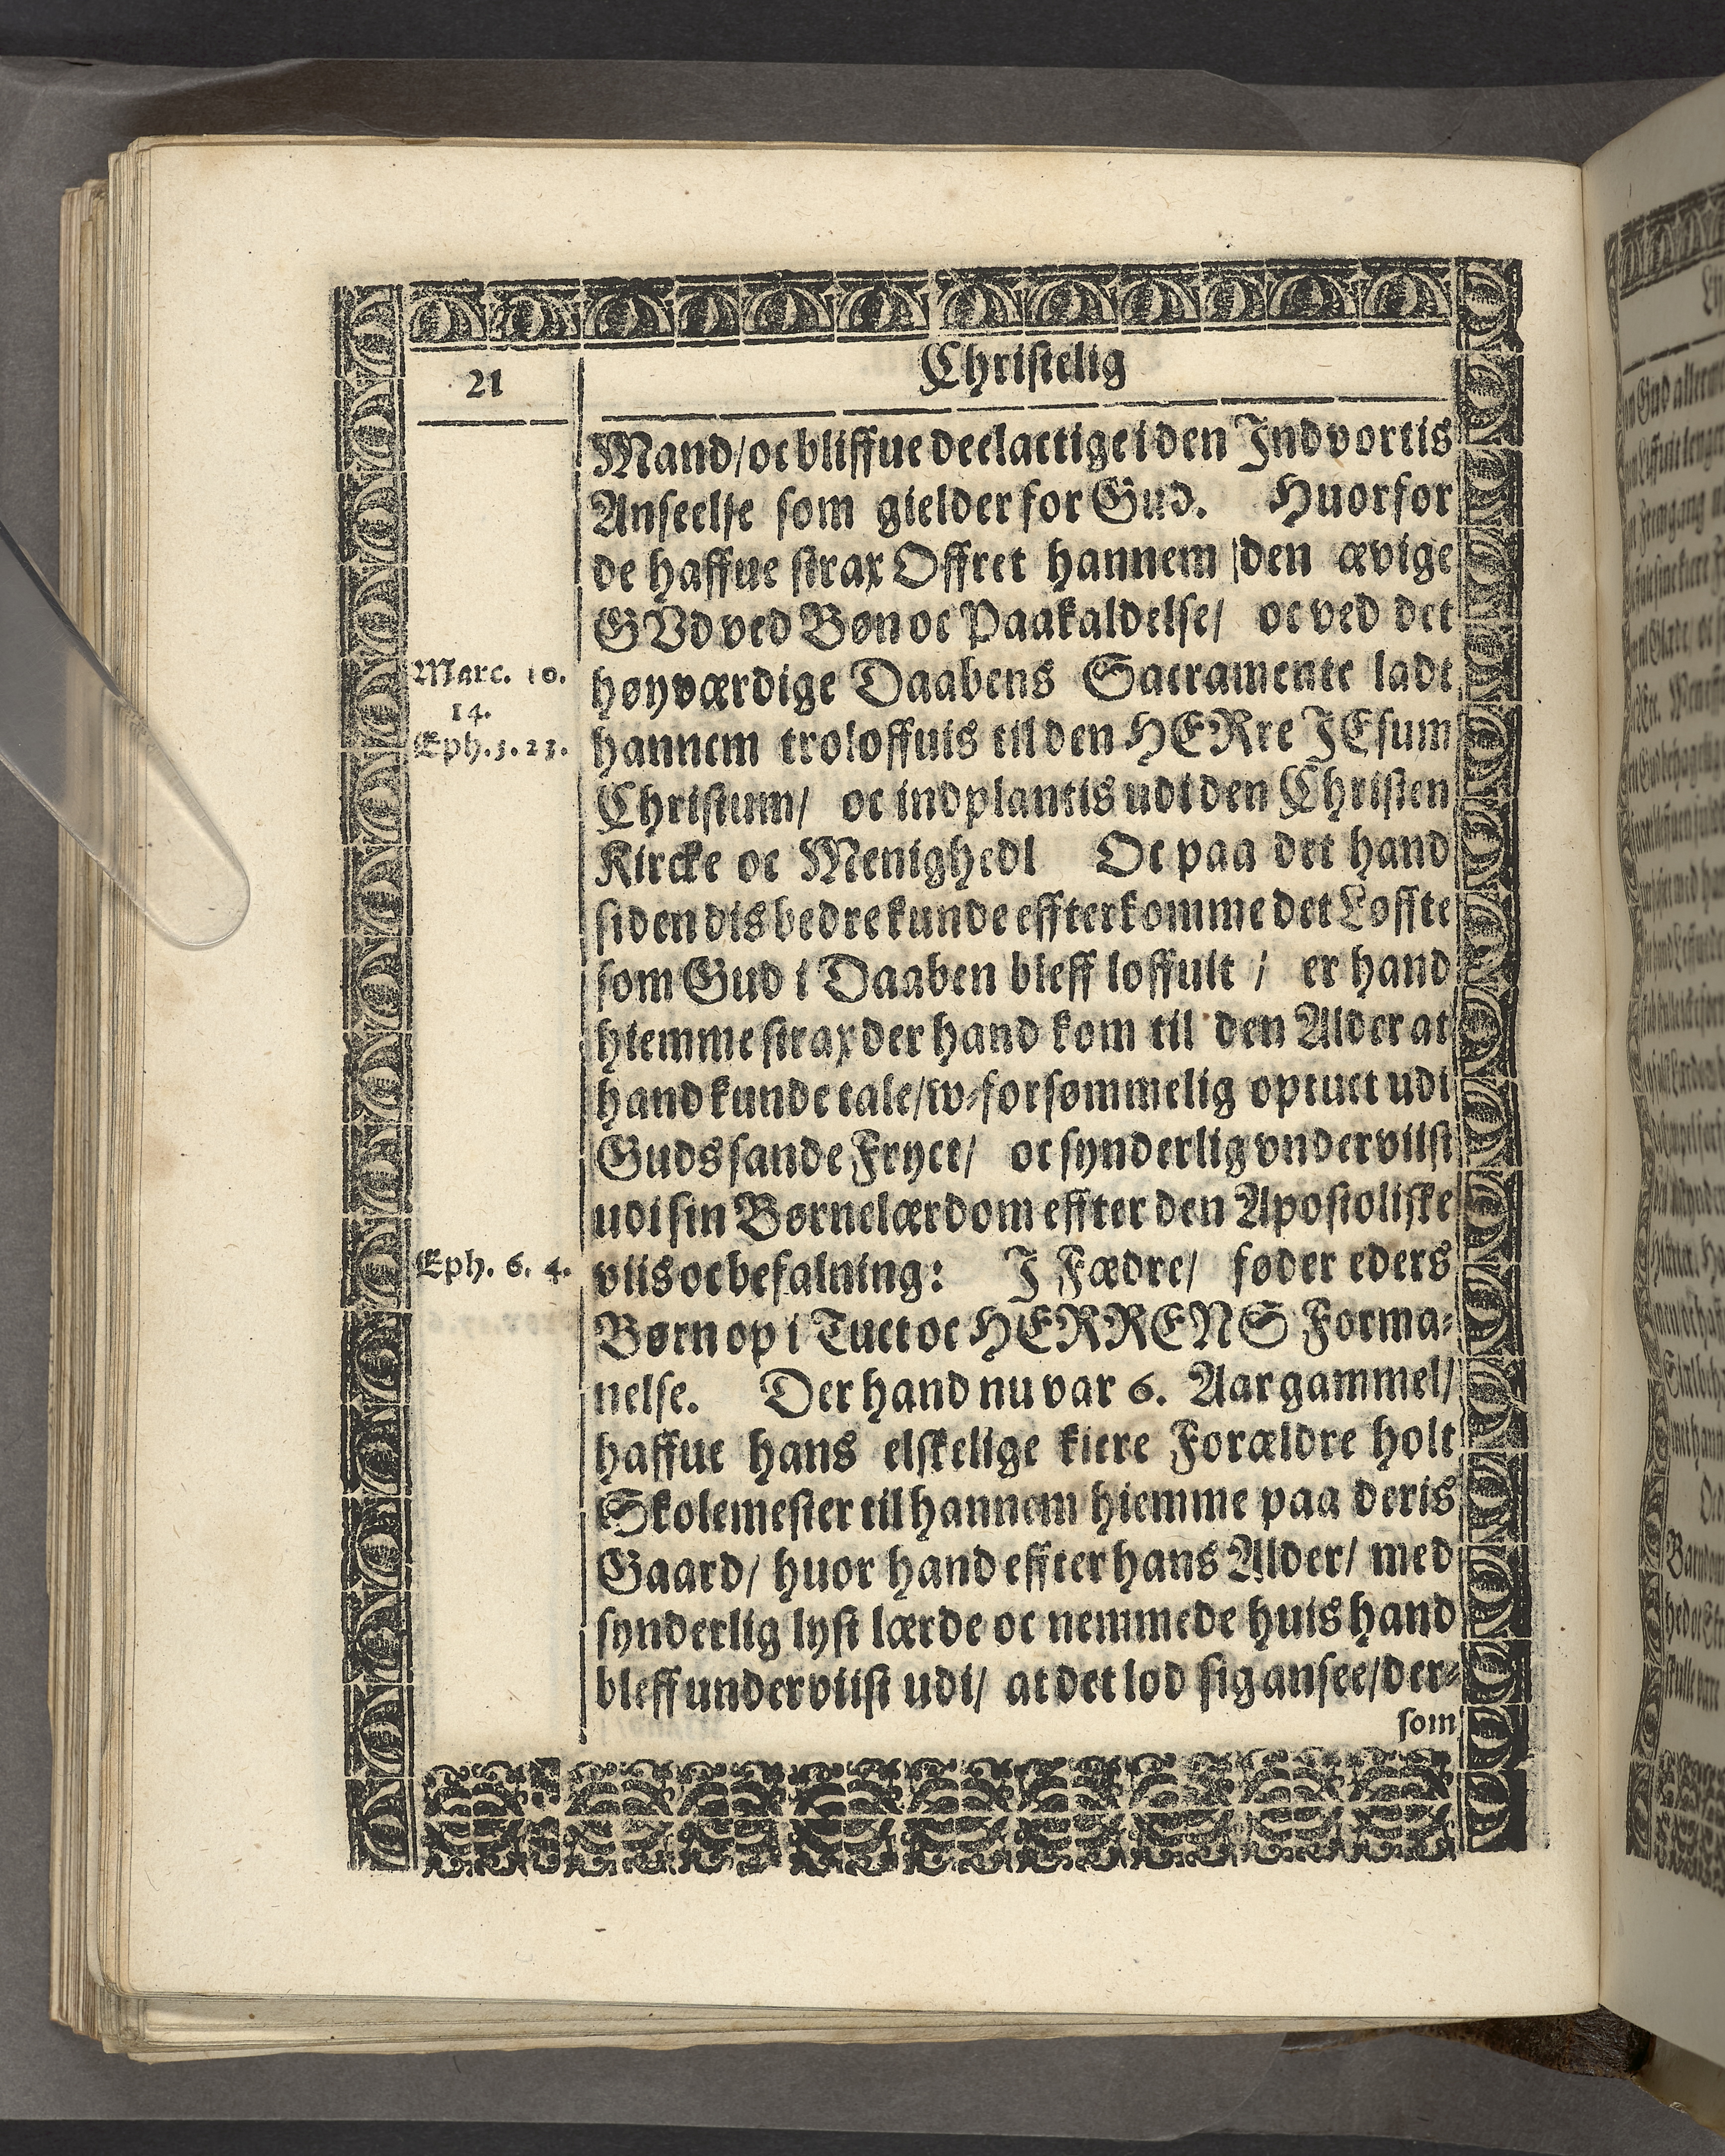 21
Christelig
Mand/ oc bliffue deelactige i den Indvortis
Anseelse som gielder for Gud. Huorfor
de haffue strax Offret hannem /den ævige
GVd ved Bøn oc Paakaldelse/ oc ved det
høyværdige Daabens Sacramente ladt
hannem troloffuis til den HERre JEsum
Christum/ oc indplantis udi den Christen
Kircke oc Menighed/ Oc paa det hand
siden dis bedre kunde effterkomme det Løffte
som Gud i Daaben bleff loffuit / er hand
hiemme strax der hand kom til den Alder at
hand kunde tale/ w-forsømmelig optuct udi
Guds sande Fryct/ oc synderlig vnderviist
udi sin Børnelærdom effter den Apostoliske
viis oc befalning: J Fædre/ føder eders
Børn op i Tuct oc HERRENS Forma-
nelse. Der hand nu var 6. Aar gammel/
haffue hans elskelige kiere Forældre holt
Skolemester til hannem hiemme paa deris
Gaard/ huor hand effter hans Alder/ med
synderlig lyst lærde oc nemmede huis hand
bleff underviist udi/ at det lod sig ansee/ der-
som
Marc. 10.
14.
Eph. 5. 23.
Eph. 6. 4.